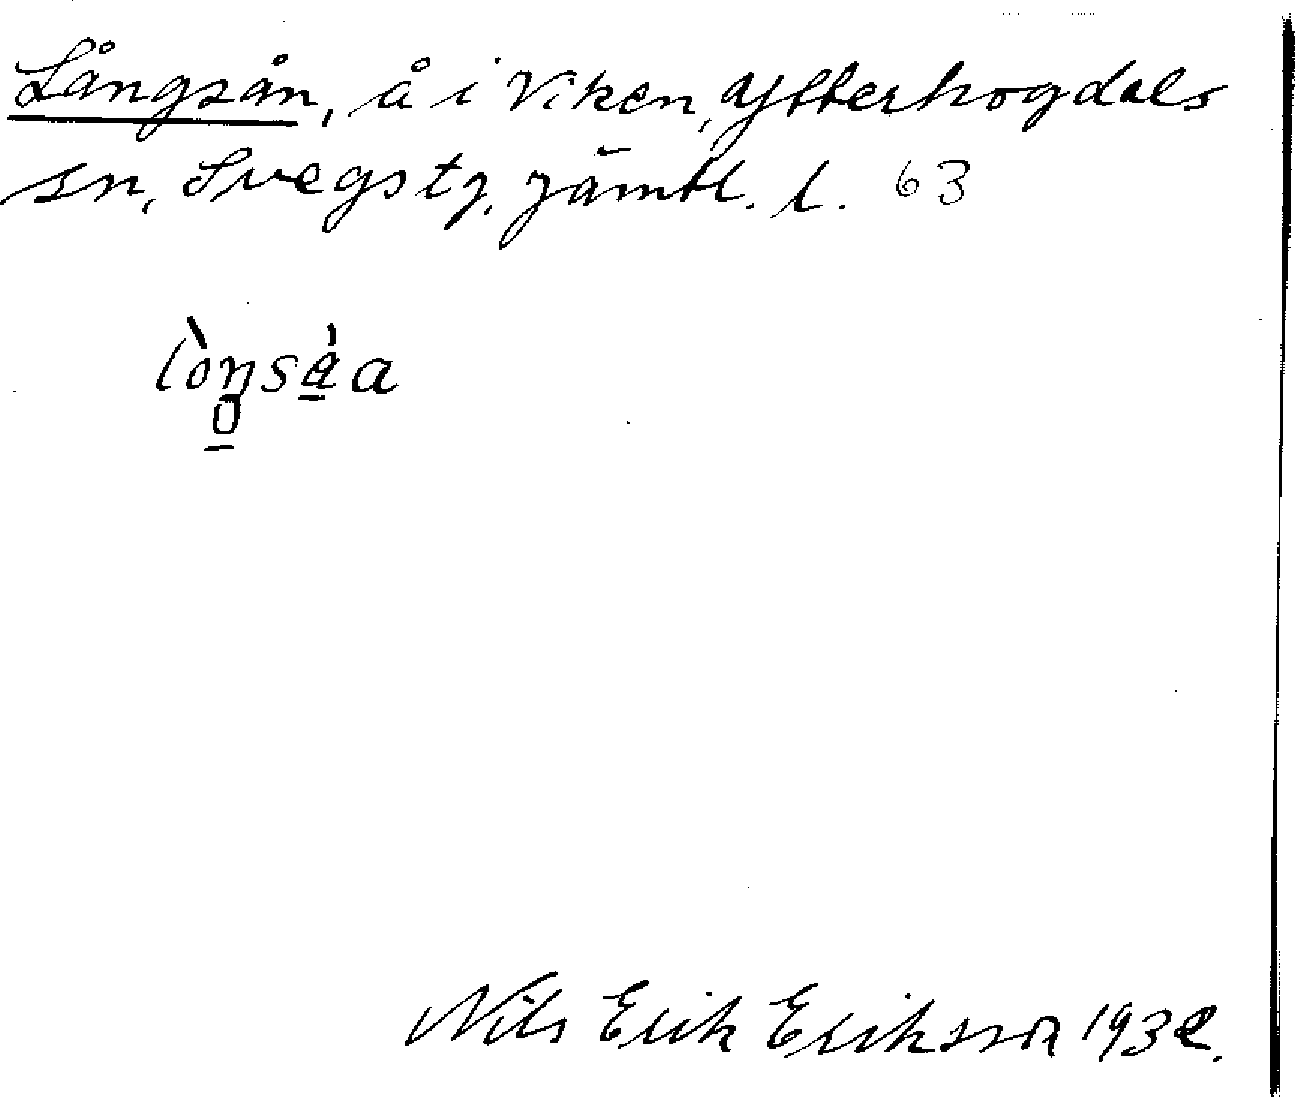 Långsån, å i Viken, Ytterhogdals
sn, Svegs tg, Jämtl. l. 63
lòŋsa̠̍a
Nils Erik Eriksson 1932.